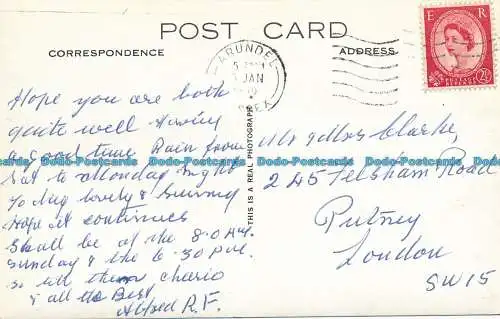 POST CARD
CORRESPONDENCE
ADDRESS
ARUNDEL
JAN
E R
2½
THIS IS A REAL PHOTOGRAPH
Hope you are both
quite well Having
a good time Rain from
Sat to Monday night
To day lovely & Sunny
Hope it continues
Shall be at the 8.0 A.M.
Sunday & the 6.30 P.M.
so till then cheerio
& all the Best
Alfred R.F.
Mr & Mrs Clarke,
245 Felsham Road
Putney
London
SW15
Dodo-Postcards Dodo-Postcards Dodo-Postcards Dodo-Postcards Dodo-Postcards Dodo-Postcards